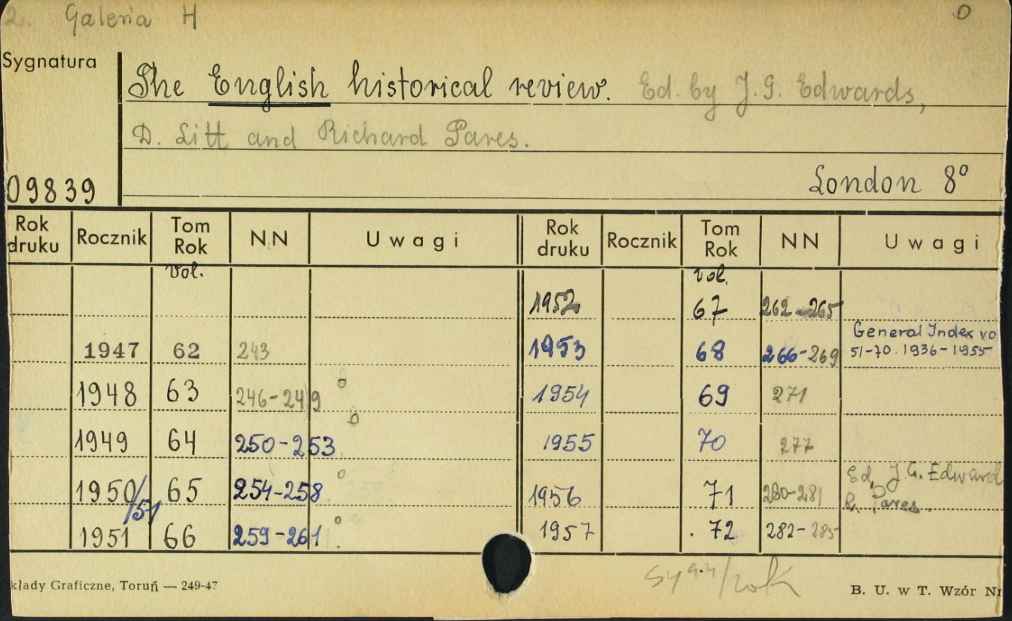 2. Galeria H O
Sygnatura
The English historical review. Ed. by J. G. Edwards,
D. Litt and Richard Pares.
09839 London 8°
Rok druku Rocznik Tom Rok NN Uwagi Rok druku Rocznik Tom Rok NN Uwagi
vol. vol.
1952 67 262-265
1947 62 243 1953 68 266-269 General Index vo 51-70. 1936-1955
1948 63 246-249 1954 69 271
1949 64 250-253 1955 70 277
1950/51 65 254-258 1956 71 280-281 Ed. J. G. Edward R. Pares.
1951 66 259-261 1957 72 282-285
kłady Graficzne, Toruń — 249-47 B. U. w T. Wzór Nr